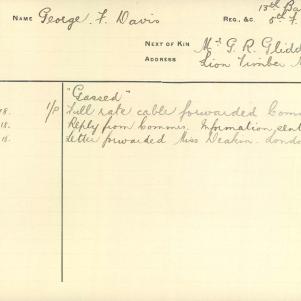 NAME George F. Davis
REG. &C. 13th Ba
5th F
NEXT OF KIN Mr G. R. Glidd
ADDRESS Lion Timber
"Gassed"
18. 1/P Full rate cable forwarded Comm
18. Reply from Commr. Information sent
18. Letter forwarded Miss Deakin. London